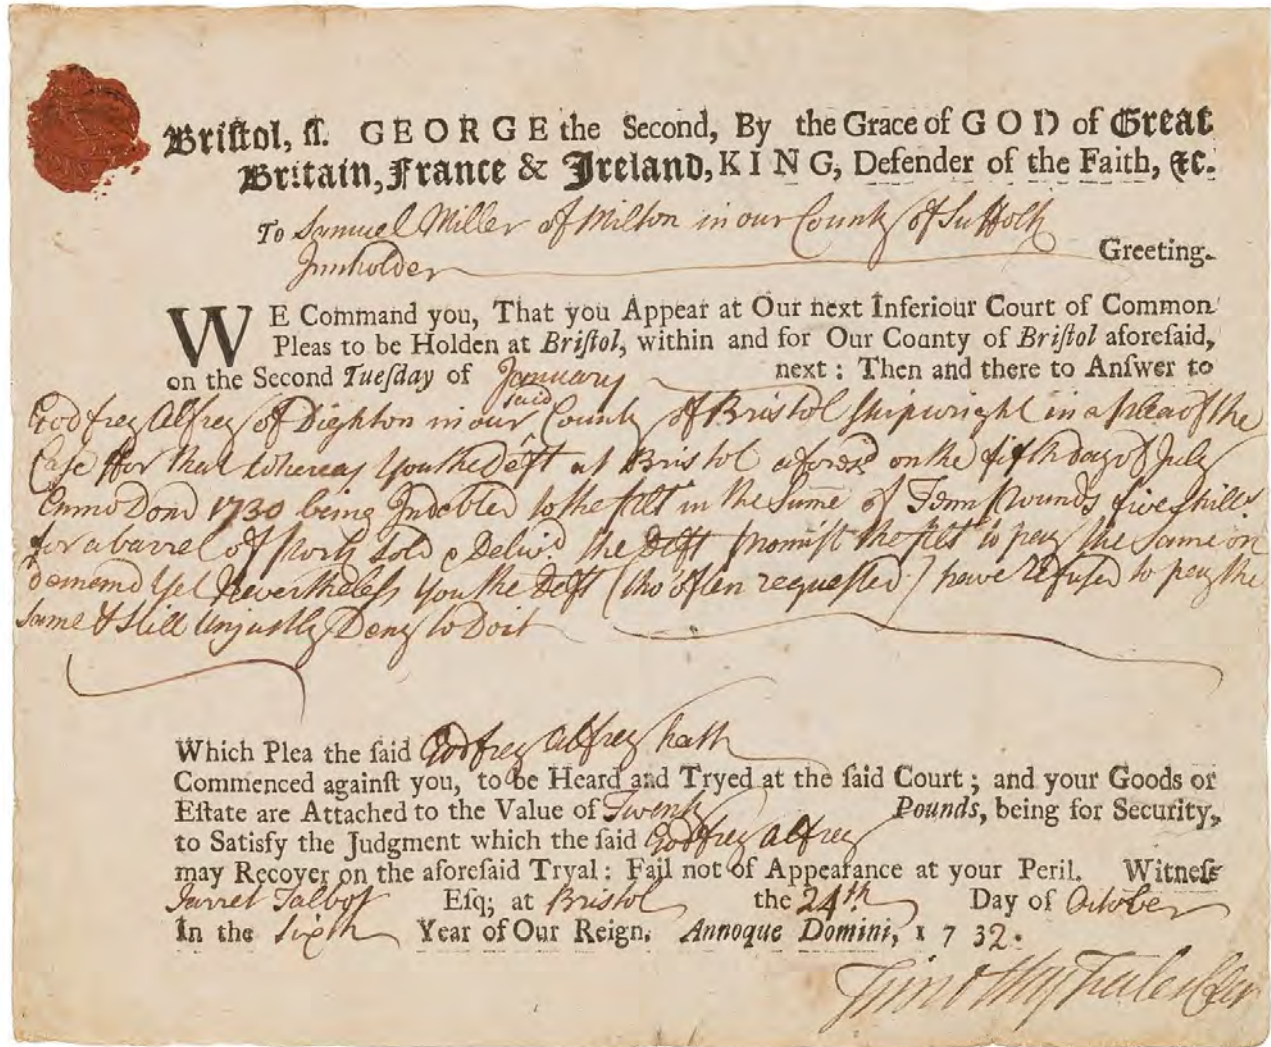 Briſtol, ſſ. GEORGE the Second, By the Grace of GOD of Great
Britain, France & Ireland, KING, Defender of the Faith, &c.
To Samuel Miller of Milton in our County of Suffolk
Innholder Greeting.
WE Command you, That you Appear at Our next Inferiour Court of Common
Pleas to be Holden at Briſtol, within and for Our County of Briſtol aforeſaid,
on the Second Tueſday of January next: Then and there to Anſwer to
Godfrey Alfrey of Dighton in our said County of Bristol Shipwright in a plea of the
Case ffor that whereas you the Deft at Bristol afores.d on the fifth day of July
Anno Domi 1730 being Indebted to the plt in the Sume of Tenn pounds five shills.
for a barrel of pork sold & Deliv.d the Deft promist the plt to pay the same on
demand yet Nevertheleſs you the Deft (tho' often requested) have refused to pay the
same & still Unjustly Deny to Do it
Which Plea the ſaid Godfrey Alfrey hath
Commenced againſt you, to be Heard and Tryed at the ſaid Court; and your Goods or
Eſtate are Attached to the Value of Twenty Pounds, being for Security,
to Satisfy the Judgment which the ſaid Godfrey Alfrey
may Recover on the aforeſaid Tryal: Fail not of Appearance at your Peril. Witneſs
Jarret Talbot Eſq; at Bristol the 24th Day of October
In the Sixth Year of Our Reign. Annoque Domini, 1732.
Timothy Fales Cler